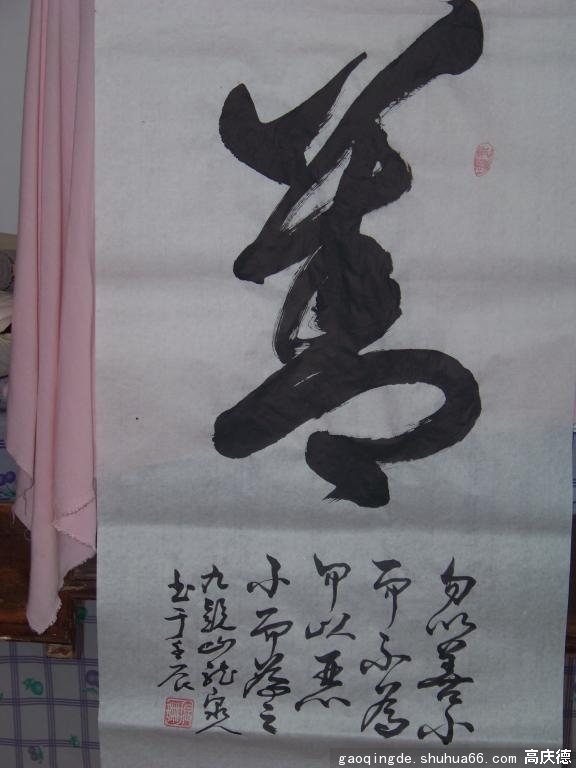 善
勿以善小
而不為
勿以惡
小而為之
九山龙泉人
书于壬辰
gaoqingde.shuhua66.com 高庆德